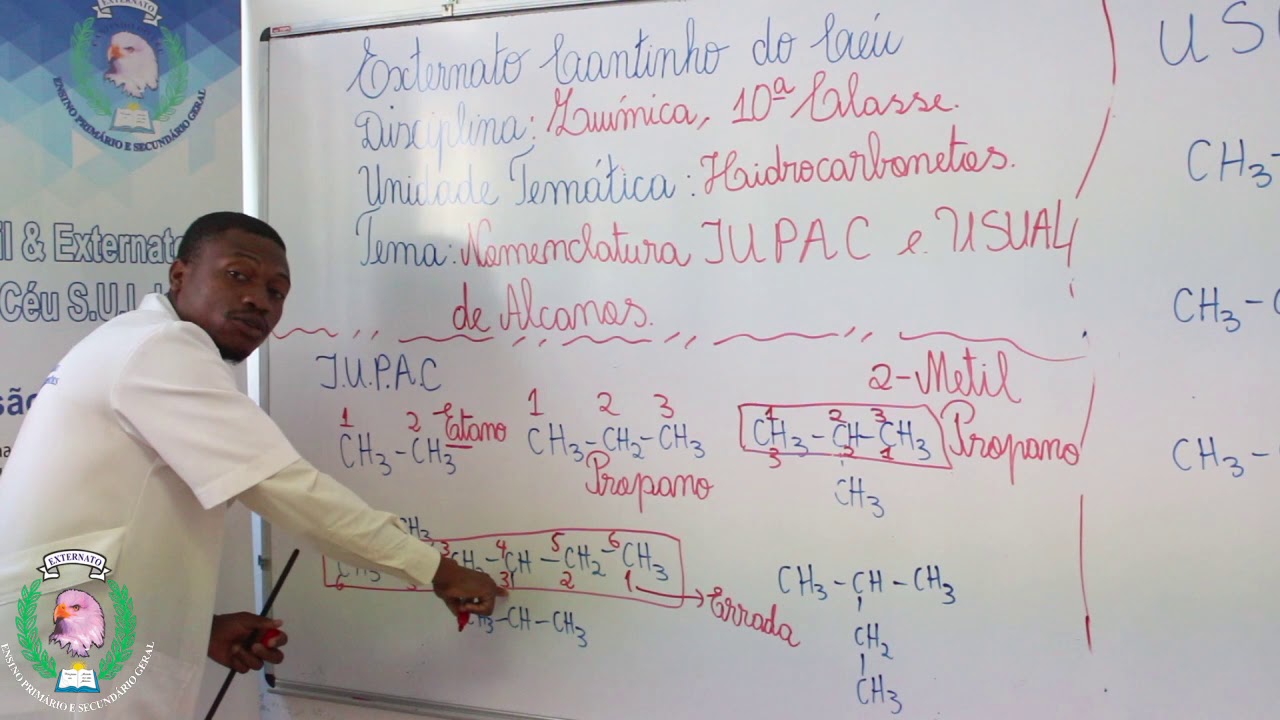 EXTERNATO
ENSINO PRIMÁRIO E SECUNDÁRIO GERAL
il & Externato
Céu S.U.L
são
Externato Cantinho do Céu
Disciplina: Química, 10ª Classe.
Unidade Temática: Hidrocarbonetos.
Tema: Nomenclatura IUPAC e USUAL
de Alcanos.
I.U.P.A.C
1 2 Etano
CH3-CH3
1 2 3
CH3-CH2-CH3
Propano
2-Metil
1 2 3
CH3-CH-CH3 Propano
3 2 1
CH3
CH3
3 4 5 6
CH3 CH2-CH-CH2-CH3
6 3 2 1 Errada
CH3-CH-CH3
CH3-CH-CH3
CH2
CH3
CH3-
CH3-
CH3-
EXTERNATO
ENSINO PRIMÁRIO E SECUNDÁRIO GERAL